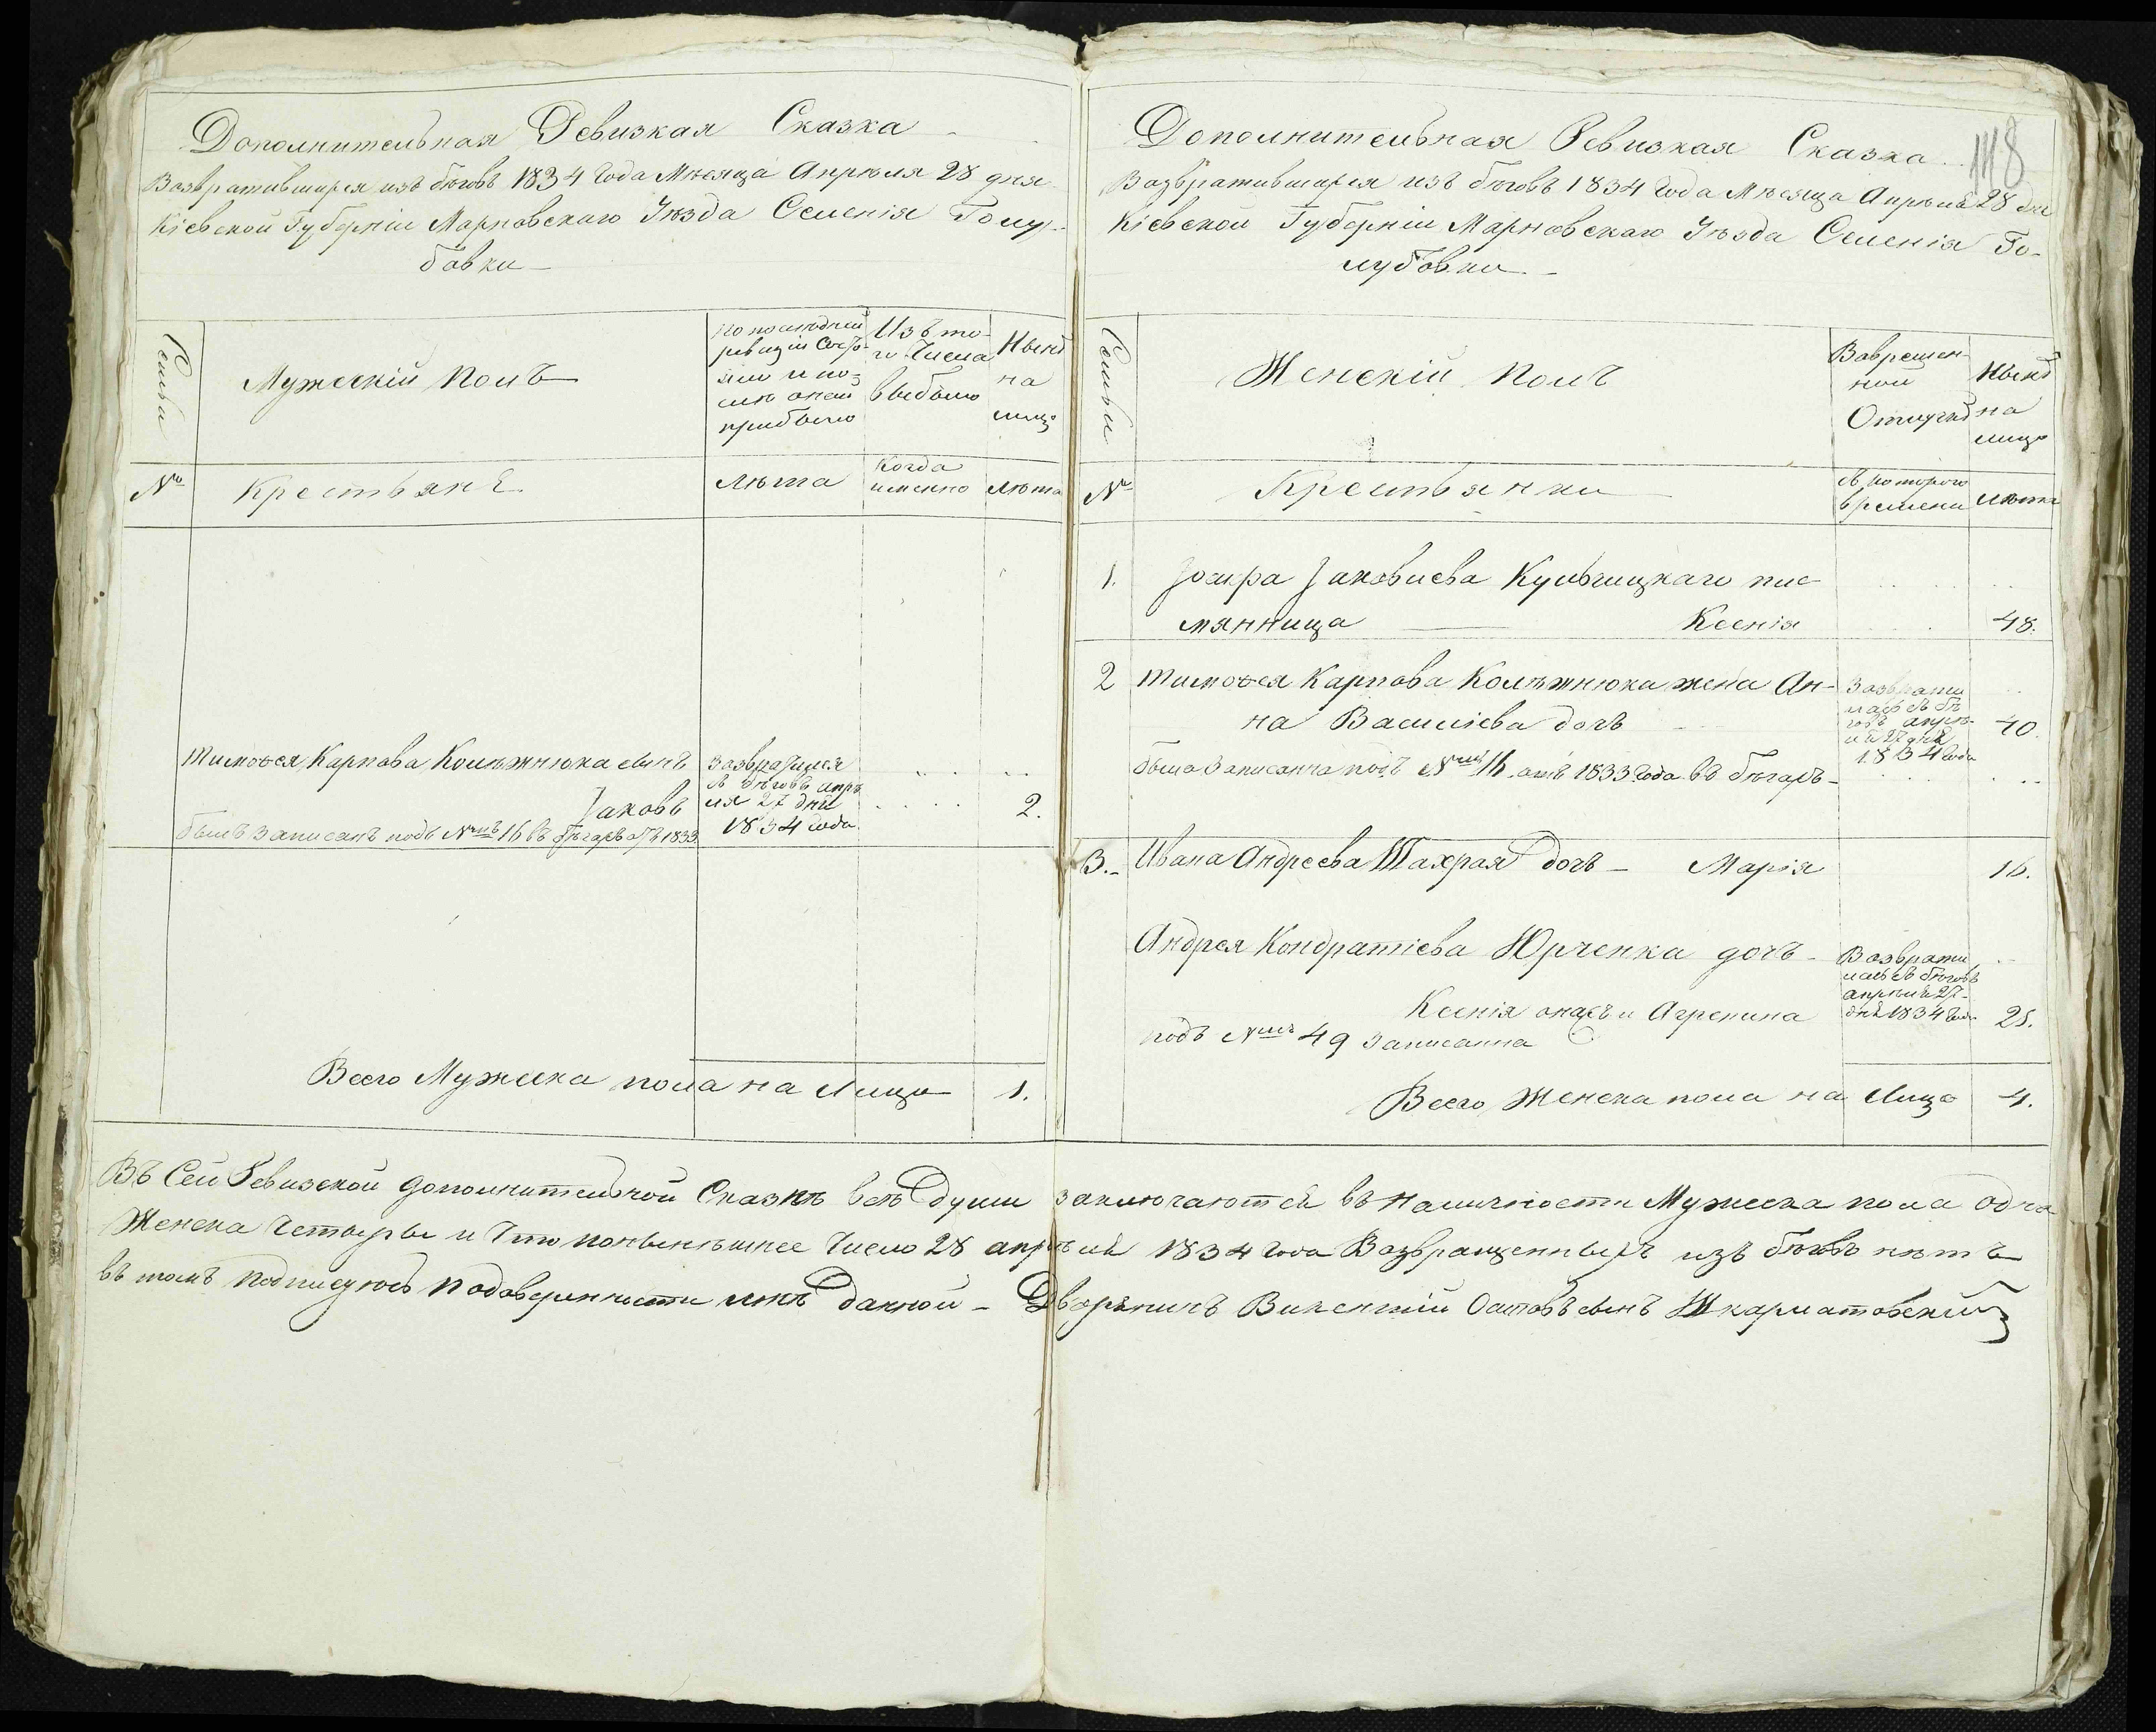 Дополнительная Ревизкая Сказка
Возвратившихся изъ бѣговъ 1834 Года Мѣсяца Апрѣля 28 дня
Кіевской Губерніи Махновскаго Уѣзда Селенія Голу-
бовки
Семьи
Мужескій Полъ
По последней
ревизіи Состо-
яло и по-
слѣ оной
прибыло
Изъ то-
го Числа
выбыло
Нынѣ
на
лицо
№
Крестьянѣ
Лѣта
Когда
именно
Лѣта
Тимофея Карпова Колѣжнюка сынъ
Іаковъ
былъ записанъ подъ №мъ 16 въ бѣгахъ отъ 1833
Возвратился
съ бѣговъ апрѣ
ля 27 дня
1834 года
2.
Всего Мужеска пола на Лицо 1.
118
Дополнительная Ревизкая Сказка
Возвратившихся изъ бѣговъ 1834 Года Мѣсяца Апрѣля 28 дня
Кіевской Губерніи Махновскаго Уѣзда Селенія Го-
лубовки
Семьи
Женскій Полъ
Вовремен-
ной
Отлучкѣ
Нынѣ
на
лицо
№
Крестьянки
Съ котораго
времени
Лѣта
1. Іосифа Іаковлева Кульчицкаго пле
мянница Ксенія 48.
2 Тимофея Карпова Колѣжнюка жена Ан-
на Василіева дочъ 40.
была Записанна подъ №мъ 16 отъ 1833 Года въ бѣгахъ
Возврати
лась съ бѣ
говъ апрѣ-
ля 27 дня
1834 Года
3. Ивана Андреева Шахрая дочъ Марія 16.
Андрея Кондратіева Юрченка дочъ
Ксенія онажъ и Агрепина 25.
подъ №мъ 49 записанна
Возврати
лась съ бѣговъ
апрѣля 27
дня 1834 Года
Всего Женска пола на Лицо 4.
Въ Сей Ревизской дополнительной Сказкѣ всѣ Души заключаются въ наличности Мужеска пола одна
Женска Четыры и Что понынѣшнее Число 28 апрѣля 1834 Года Возвращенныхъ изъ бѣговъ нѣтъ
въ томъ подписуюсь Подоверенности мнѣ Данной – Дворянинъ Викентій сынъ Шкарматовскій